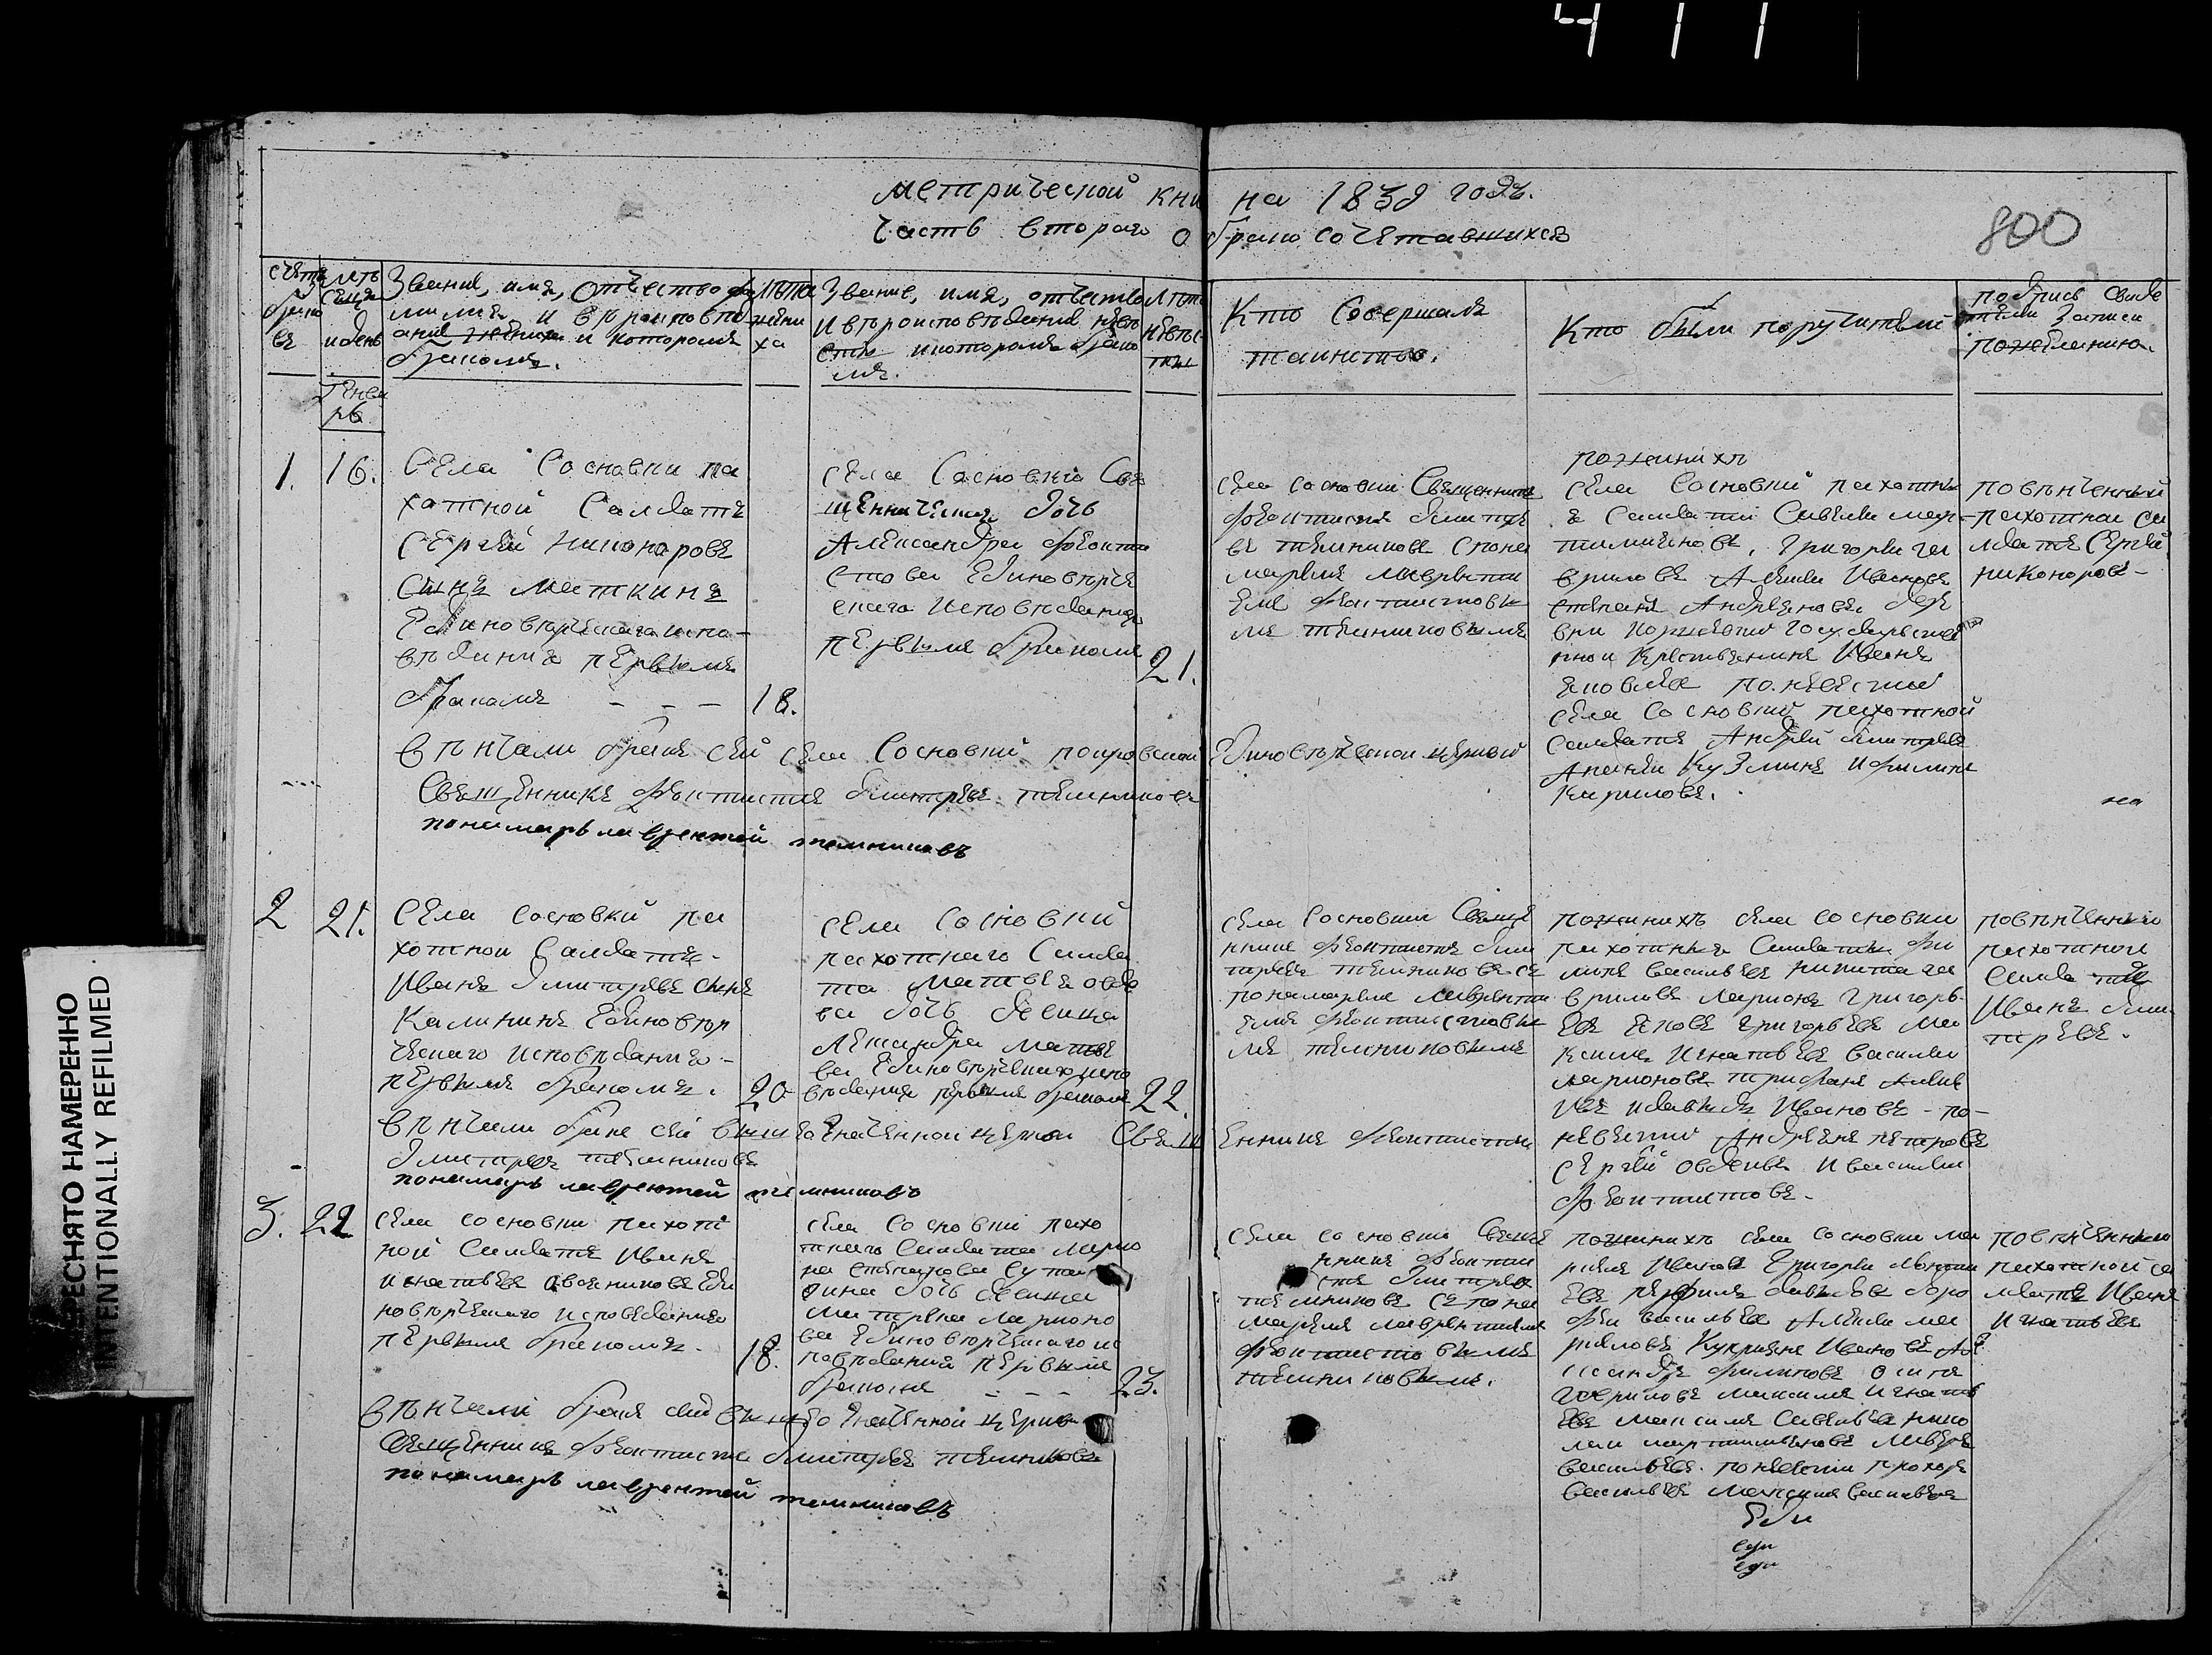 411
метрической кни на 1839 годъ.
часть вторая о брако сочетавшихся
800
счетъ браковъ
месяцъ и день
Звание, имя, отчество фамилия и вероисповедание жениха и которымъ бракомъ.
лета жениха
Звание, имя, отчество и вероисповедание невесты и которымъ бракомъ.
лета невесты
Кто Совершалъ
таинство.
Кто были поручители
подпись свидетелей записи
пожеланию.
Генварь
1.
16.
Села Сосновки па
хотной Салдатъ
Сергей Никоноровъ
сынъ Маткинъ
Единоверческаго испо-
ведания первымъ
бракомъ - - -
18.
села Сосновки Свя
щенническая дочь
Александра Феокти
стова Единоверче
скаго исповедания
первымъ бракомъ
21.
села Сосновки Священникъ
Феоктистъ Дмитрие
въ темниковъ спона
маремъ Лаврентиемъ Феоктистовы
мъ темниковымъ
пожених
села Сосновки пахотны
я Салдати Савелий мар
тимияновъ, Григорий га
вриловъ Алексей Ивановъ
степанъ Андреяновъ дере
вни государстве
нной Крестьянинъ Иванъ
яковлев по невестой
села Сосновки пахотной
Салдатъ Андрей Дмитриев
Ананий Кузминъ и филипъ
Кириловъ.
повенченный
пахотной са
лдатъ Сергей
никоноровъ-
венчали бракъ сей села Сосновки покровской Единоверческой церкви
Священникъ Феоктистъ Дмитриевъ темниковъ
понамарь лаврентей темниковъ
на
2
21.
Села сосновки па
хотной Салдатъ-
Иванъ Дмитриевъ сынъ
Калининъ Единовер
ческаго исповедания-
первымъ бракомъ.
20
села Сосновки
пахотнаго Салда
та Матвея овде
ва дочь девица
Александра Матве
ва Единоверческих испо
ведания первымъ бракомъ
22.
села Сосновки Свяще
нникъ Феоктистъ Дми
триевъ темниковъ съ
понамаремъ Лавренти
емъ Феоктистовы
мъ темниковымъ
поженихъ села сосновки
пахотныя Салдаты
василье никита га
вриловъ Ларионъ Григорь
евъ яковъ Григорьевъ Ма
ксимъ Игнатьевъ Василий
ларионовъ трифанъ
и давыдъ Ивановъ - по-
невести Андреянъ петровъ
Сергей овдеивъ и василий
Феоктистовъ.
повенченный
пахотной
Салдатъ
Иванъ Дми
триевъ.
венчали бракъ сей вышеозначенной церкви Священникъ Феоктистъ
Дмитриевъ темниковъ
понамарь лаврентей темниковъ
3.
22
села сосновки пахот
ной Салдатъ Иванъ
игнатьевъ овсяниковъ Еди
новерческаго исповедания
первымъ бракомъ.
18.
села Сосновки пахо
тнаго Салдата Ларио
на степанова
дочь девица
Матрена Ларионо
ва Единоверческаго ис
поведания первымъ
бракомъ - - -
23.
села сосновки Свяще
нникъ Феокти
стъ Дмитриевъ
темниковъ съ пона
маремъ лаврентиемъ
Феоктистовымъ
темниковымъ.
поженихъ села сосновки
Ивановъ Григорий
евъ перфилъ давыдовъ доро
фей васильевъ Алексей
Куприянъ Ивановъ Але
ксандръ филиповъ осипъ
гавриловъ максимъ игнать
евъ максимъ савельевъ нико
лай мартимьяновъ лаверъ
васильевъ. поневести прохоръ
васильевъ максимъ васильевъ
повенченный
пахотной са
лдатъ Иванъ
Игнатьевъ
венчали бракъ сей вышеозначенной церкви
священникъ Феоктистъ Дмитриевъ темниковъ
понамарь лаврентей темниковъ
Еди
еди
еди
ПЕРЕСНЯТО НАМЕРЕННО
INTENTIONALLY REFILMED